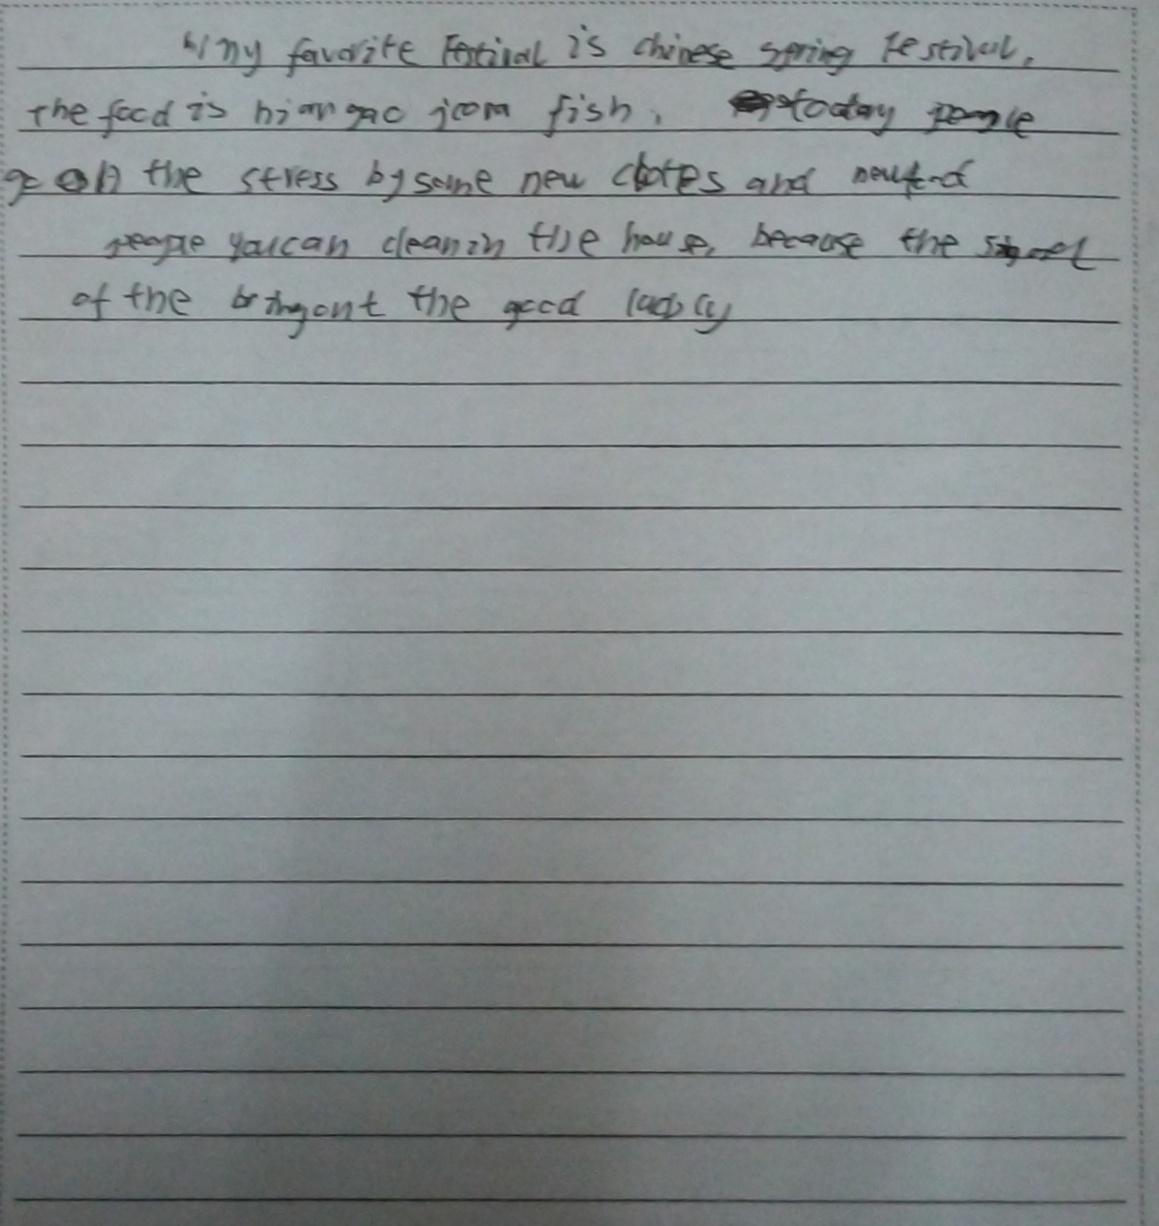 my favorite Festival is chinese spring Festival.
the food is fish, today people
go on the stress by some new clotes and
people you can cleanin the house, because the
of the bringont the good